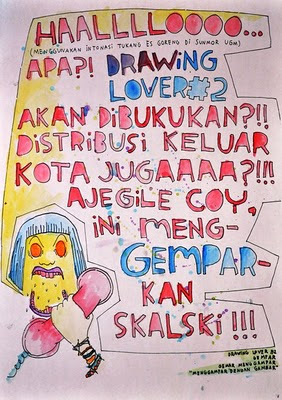 HAALLLLOOOO...
(MENGGUNAKAN INTONASI TUKANG ES GORENG DI SUNMOR UGM)
APA?! DRAWING
LOVER#2
AKAN DIBUKUKAN?!!
DISTRIBUSI KELUAR
KOTA JUGAAAA?!!!
AJEGILE COY,
INI MENG-
GEMPAR-
KAN
SKALSKI!!!
DRAWING LOVER #2
GEMPAR
GEMAR MENGGAMPAR
"MENGGAMPAR DENGAN GAMBAR"